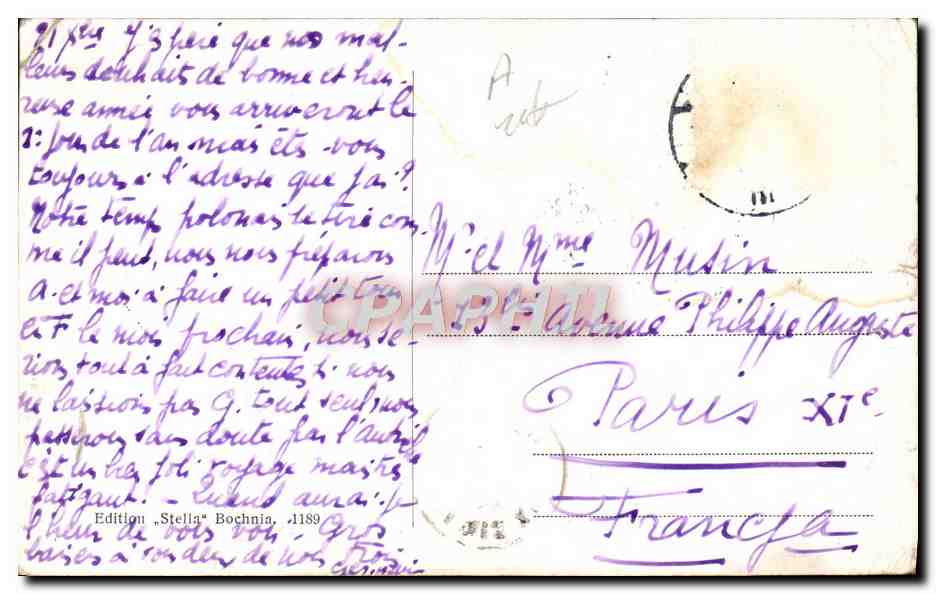 Xbre J'espère que nos meil-
leurs souhaits de bonne et heu-
reuse année vous arriveront le
1: jour de l'an mais êtes-vous
toujours à l'adresse que j'ai?
Notre temps polonais se tire com
me il peut, nous nous préparons
A. et moi à faire un petit tour
en F le mois prochain, nous se-
rions tout à fait contentes si nous
ne laissions pas G. tout seul, nous
passerons sans doute par l'Autri
c'est un bien joli voyage mais très
fatigant. - Quand aurai-je
l'heur de vous voir. Gros
baisers à vous deux de nous trois
Edition „Stella" Bochnia. 1189
Mr et Mme Musin
Avenue Philippe Auguste
Paris XIe
Francja
CPAPHIL
III